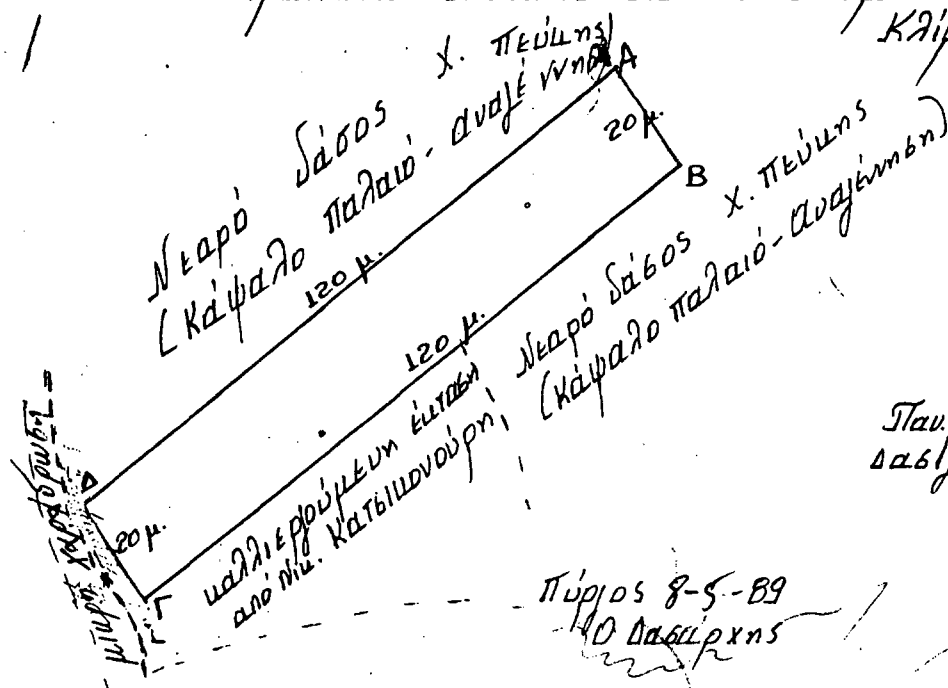 Κλίμ
Νεαρό δάσος Χ. Πεύκης
(Κάψαλο παλαιό - αναγέννηση)
Α
20 μ.
Β
120 μ.
120 μ.
Νεαρό δάσος Χ. Πεύκης
(Κάψαλο παλαιό - Αναγέννηση)
καλλιεργούμενη έκταση
από Νικ. Κατσικονούρη
Δ
20 μ.
Γ
μικρή
Παν.
Δασ
Πύργος 8-5-89
Ο Δασάρχης